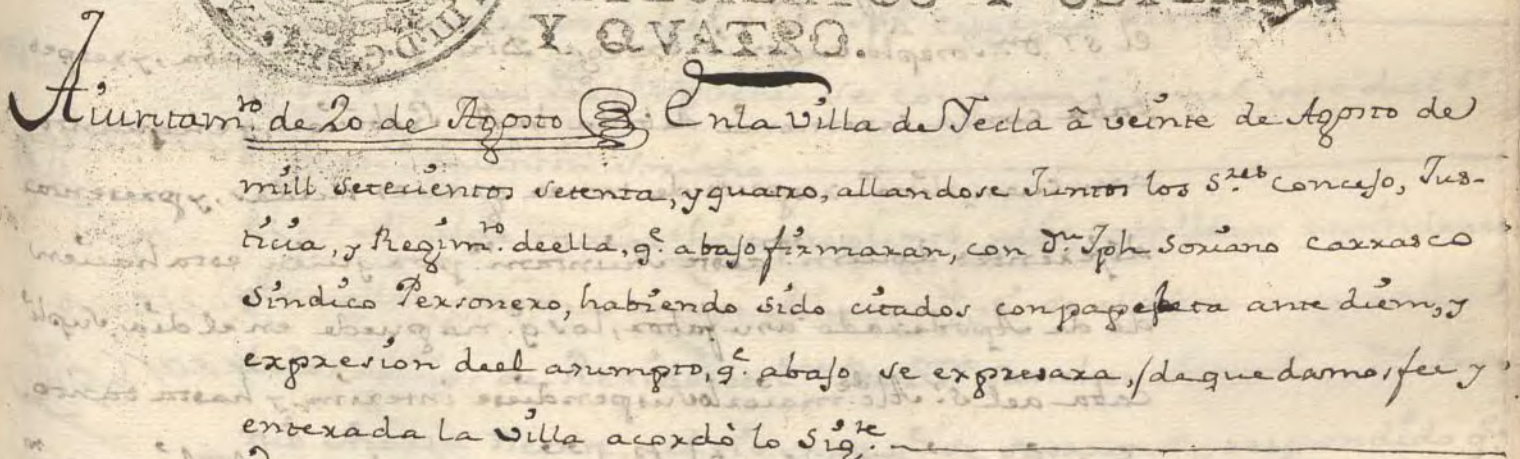 Y QVATRO.
Aiuntam.to de 20 de Agosto En la Villa de Yecla â veinte de Agosto de
mill setecientos setenta, y quatro, allandose Juntos los S.res Concejo, Jus-
ticia, y Regim.to de ella, q.e abajo firmaran, con D.n Jph Soriano Carrasco
Sindico Personero, habiendo sido citados con papeleta ante diem, y
expresion de el asumpto, q.e abajo se expresara, /de que damos fee y
enterada la Villa acordò lo Sig.te